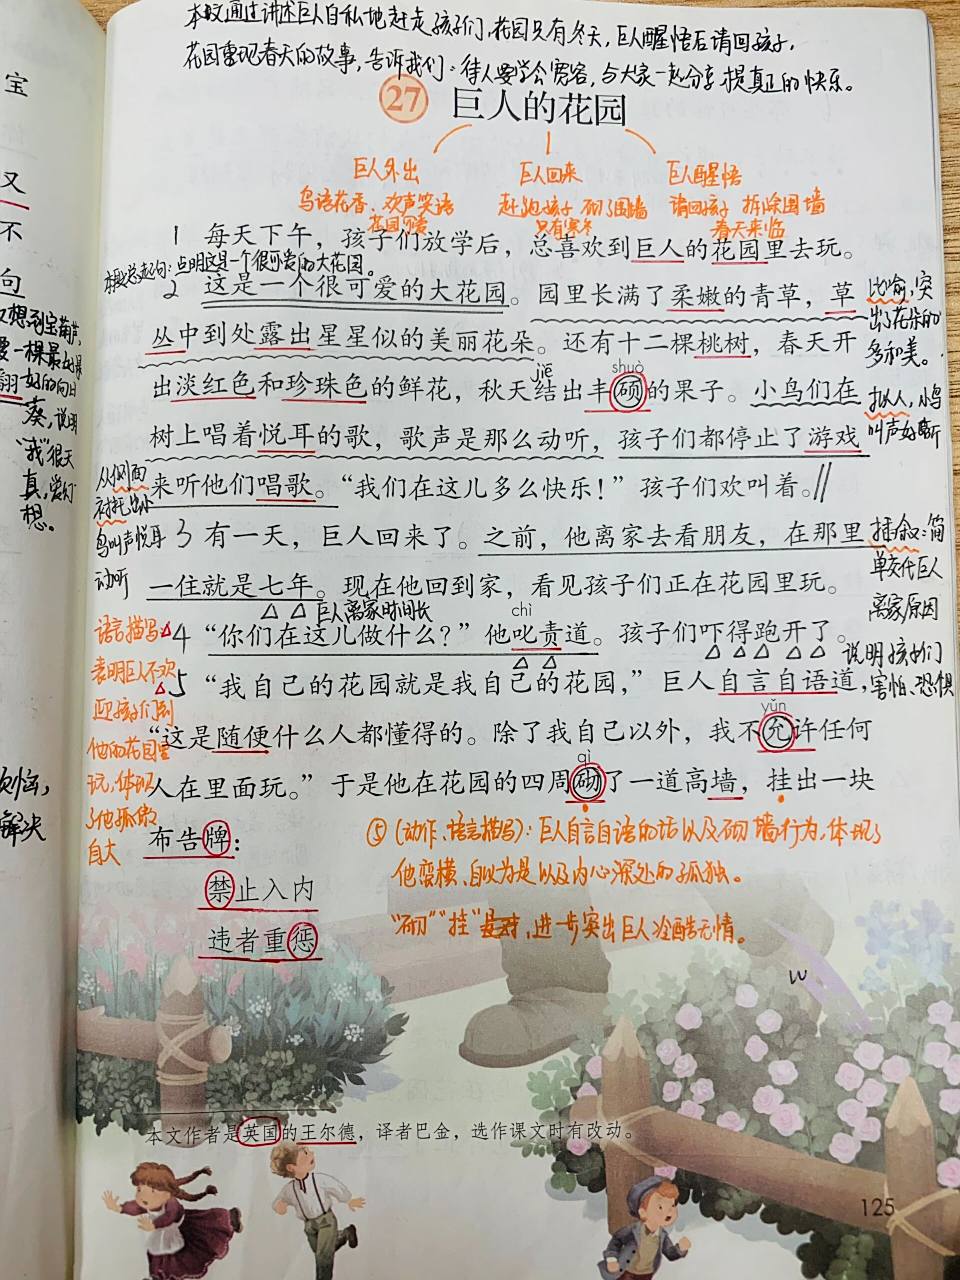 本文通过讲述巨人自私地赶走孩子们,花园只有冬天,巨人醒悟后请回孩子,
花园重现春天的故事,告诉我们:待人要学会宽容,与大家一起分享,才是真正的快乐。
27 巨人的花园
巨人外出 巨人回来 巨人醒悟
鸟语花香、欢声笑语 赶跑孩子 砌了围墙 请回孩子 拆除围墙
花园可爱 只有寒冬 春天来临
1 每天下午，孩子们放学后，总喜欢到巨人的花园里去玩。
本段总起句:点明这是一个很可爱的大花园。
2 这是一个很可爱的大花园。园里长满了柔嫩的青草，草
丛中到处露出星星似的美丽花朵。还有十二棵桃树，春天开
jiē shuò
出淡红色和珍珠色的鲜花，秋天结出丰硕的果子。小鸟们在
树上唱着悦耳的歌，歌声是那么动听，孩子们都停止了游戏
来听他们唱歌。“我们在这儿多么快乐！”孩子们欢叫着。//
3 有一天，巨人回来了。之前，他离家去看朋友，在那里
一住就是七年。现在他回到家，看见孩子们正在花园里玩。
巨人离家时间长
chì
4 “你们在这儿做什么？”他叱责道。孩子们吓得跑开了。
5 “我自己的花园就是我自己的花园，”巨人自言自语道，
yǔn
“这是随便什么人都懂得的。除了我自己以外，我不允许任何
qì
人在里面玩。”于是他在花园的四周砌了一道高墙，挂出一块
布告牌：
禁止入内
违者重惩
比喻,突
出了花朵的
多和美。
拟人,小鸟
叫声好听
插叙:简
单交代巨人
离家原因
说明孩子们
害怕、恐惧
从侧面
衬托出小
鸟叫声悦耳
动听
语言描写
表明巨人不欢
迎孩子们到
他的花园里
玩,体现
了他孤傲
自大
⑤(动作、语言描写):巨人自言自语的话以及砌墙行为,体现了
他蛮横、自以为是以及内心深处的孤独。
“砌”“挂”,进一步突出巨人冷酷无情。
w
本文作者是英国的王尔德，译者巴金，选作课文时有改动。
125
宝
又
不
句
想到宝葫芦,
一棵最好
好的向日
葵,说明
“我”很天
真,爱幻
想。
翻
解决